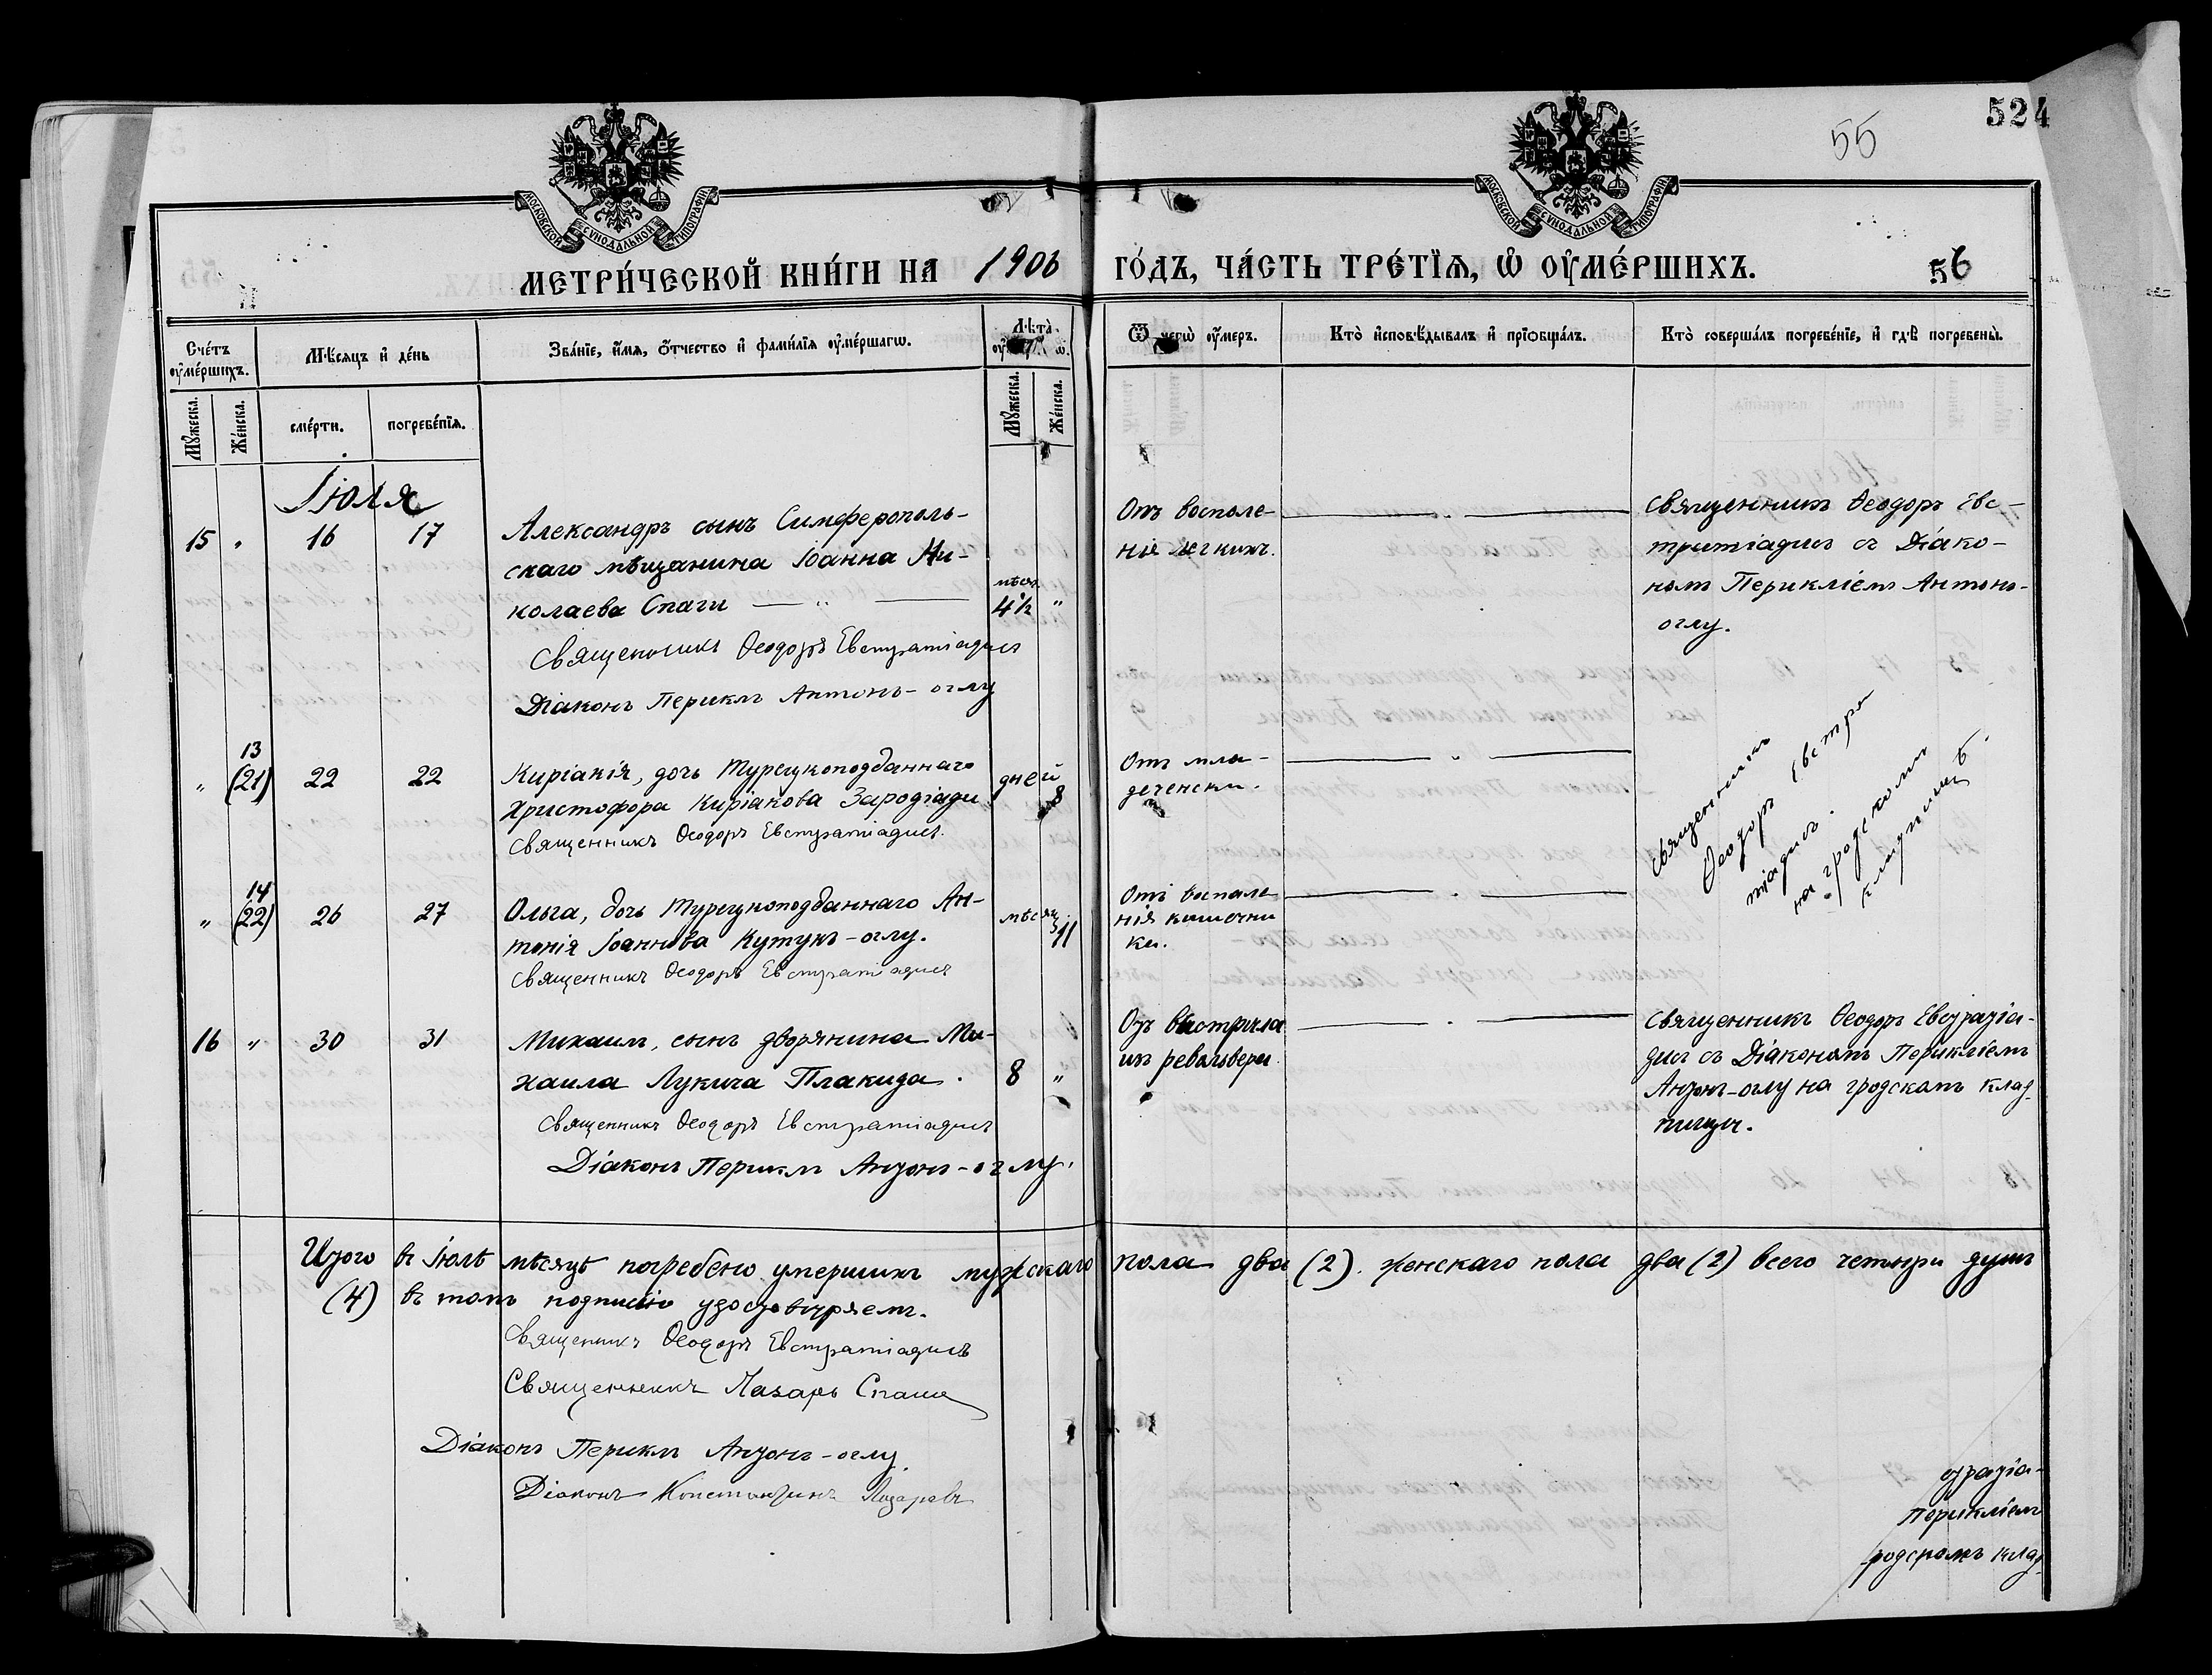 524
55
МОСКОВСКОЙ СУНОДАЛЬНОЙ ТИПОГРАФІИ
МОСКОВСКОЙ СУНОДАЛЬНОЙ ТИПОГРАФІИ
МЕТРИ́ЧЕСКОЙ КНИ́ГИ НА 1906 ГО́ДЪ, ЧА́СТЬ ТРЕ́ТІѦ, Ѡ҆ ОУ҆МЕ́РШИХЪ.
56
Сче́тъ оу҆ме́ршихъ.
Мѣ́сяцъ и҆ де́нь
Зва́нїе, и҆́мя, ѻ҆́тчество и҆ фами́лїя оу҆ме́ршагѡ.
Лѣ́та
Ѿ чегѡ̀ оу҆́меръ.
Кто̀ и҆сповѣ́дывалъ и҆ прїѡбща́лъ.
Кто̀ соверша́лъ погребе́нїе, и҆ гдѣ̀ погребены̀.
Мꙋ́жеска.
Же́нска.
сме́рти.
погребе́нїя.
Мꙋ́жеска.
Же́нска.
Іюля
15 „ 16 17
Александръ сынъ Симферополь-
скаго мѣщанина Іоанна Ни-
колаева Спаги — „ —
мѣся.
4½ „
Священникъ Ѳеодоръ Евстратіадисъ
Діаконъ Периклъ Антонъ-оглу
Отъ воспале-
нія легкихъ.
— „ —
Священникъ Ѳеодоръ Евс-
тратіадисъ съ Діако-
номъ Перикліемъ Антонъ-
оглу.
„ 13 (21) 22 22
Киріакія, дочь Турецкоподданнаго
Христофора Киріакова Зародіади
дней
8
Священникъ Ѳеодоръ Евстратіадисъ.
Отъ мла-
деченски.
— „ —
Священникъ
Ѳеодоръ Евстра
тіадисъ.
на гродскомъ
кладпищѣ.
„ 14 (22) 26 27
Ольга, дочь Турецкоподданнаго Ан-
тонія Іоаннова Кутукъ-оглу.
мѣсяц.
11
Священникъ Ѳеодоръ Евстратіадисъ
Отъ воспале
нія кишечни
ки.
— „ —
16 „ 30 31
Михаилъ, сынъ дворянина Ми-
хаила Лукича Плакида.
8 „
Священникъ Ѳеодоръ Евстратіадисъ
Діаконъ Периклъ Антонъ-оглу.
Отъ выстрѣла
изъ револьвера.
— „ —
Священникъ Ѳеодоръ Евстратіа-
дисъ съ Діакономъ Перикліемъ
Антонъ-оглу на гродскомъ клад-
пищи.
Итого въ Іюлѣ мѣсяцѣ погребено умершихъ мужскаго пола два (2). женскаго пола два (2) всего четыри душъ
(4) въ томъ подписью удостовѣряемъ.
Священникъ Ѳеодоръ Евстратіадисъ
Священникъ Лазарь Спаши
Діаконъ Периклъ Антонъ-оглу.
Діаконъ Константинъ Лазаревъ
стратіа-
Перикліемъ
родскомъ клад-